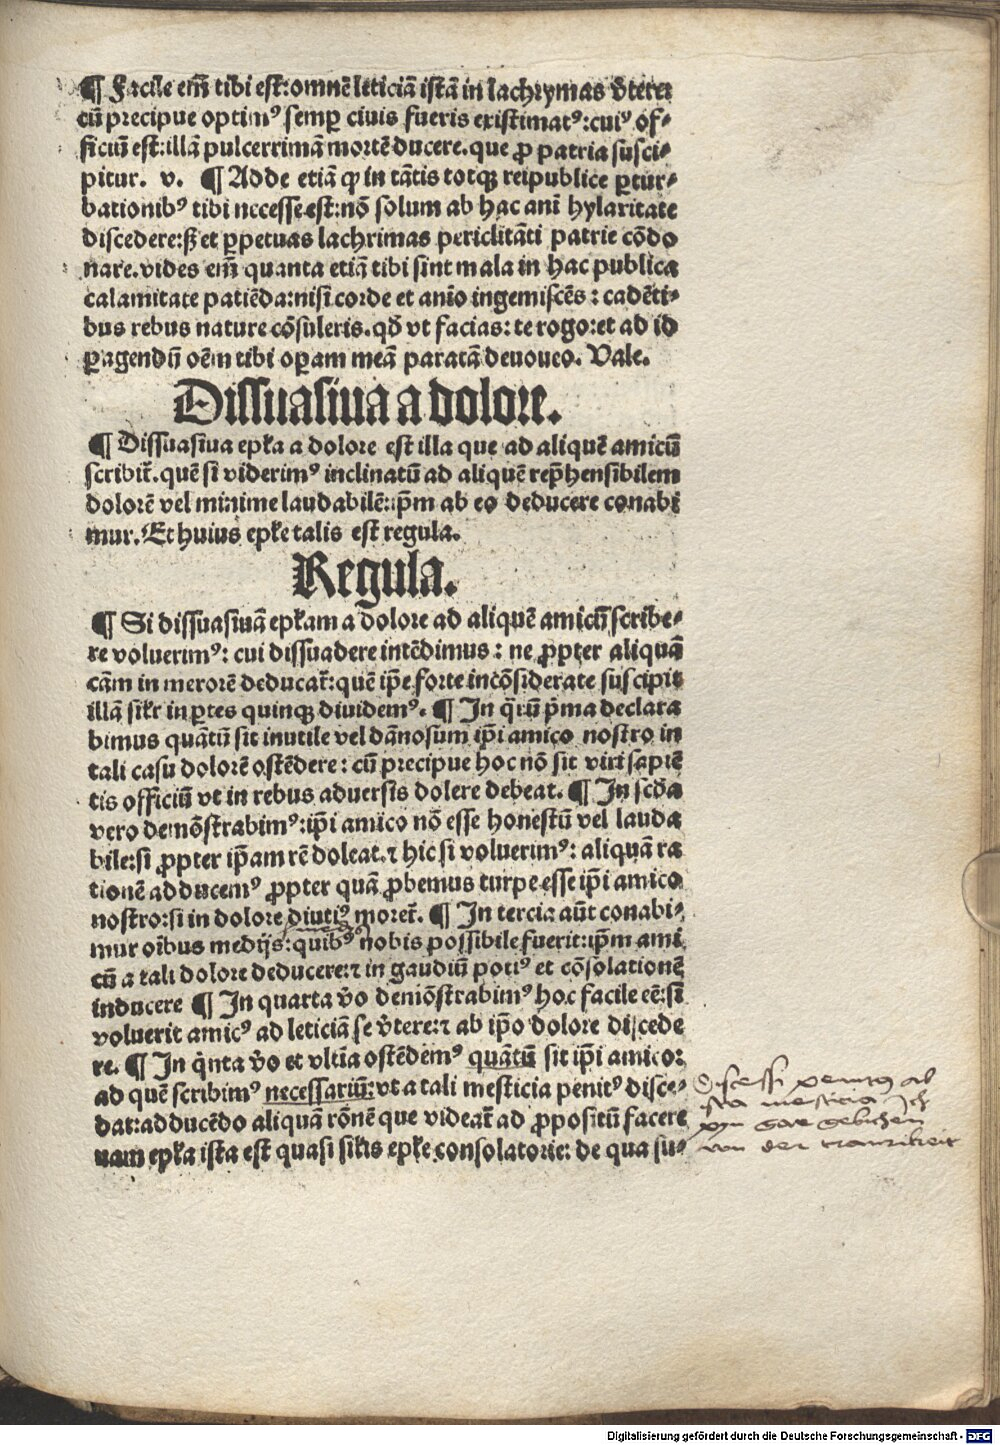 ¶ Facile em̃ tibi est:omnẽ leticiã istã in lachrymas v̓tere:
cũ precipue optimꝰ semꝑ ciuis fueris existimatꝰ:cuiꝰ of-
ficiũ est:illã pulcerrimã mortẽ ducere.que ꝓ patria susci-
pitur. v. ¶ Adde etiã ꝙ in tãtis totqꝫ reipublice ꝑtur-
bationibꝰ tibi necesse est:nõ solum ab hac ani hylaritate
discedere:ſꝫ et ꝑpetuas lachrimas periclitãti patrie cõdo
nare.vides em̃ quanta etiã tibi sint mala in hac publica
calamitate patiẽda:nisi corde et anĩo ingemiscẽs : cadẽti-
bus rebus nature cõsuleris.qđ vt facias: te rogo:et ad id
ꝑagendũ oẽm tibi oꝑam meã paratã deuoueo. Vale.
Dissuasiua a dolore.
¶ Dissuasiua epl̃a a dolore est illa que ad aliquẽ amicũ
scribit̃.quẽ si viderimꝰ inclinatũ ad aliquẽ rep̃hensibilem
dolorẽ vel minime laudabilẽ:ip̃m ab eo deducere conabi
mur. Et huius epl̃e talis est regula.
Regula.
¶ Si dissuasiuã epl̃am a dolore ad aliquẽ amicũ scribe-
re voluerimꝰ: cui dissuadere intẽdimus : ne ꝓpter aliquã
cãm in merorẽ deducat̃:quẽ ip̃e forte incõsiderate suscipit
illã sil̃r in ꝑtes quinqꝫ diuidemꝰ. ¶ In q̃rũ p̃ma declara
bimus quãtũ sit inutile vel dãnosum ip̃i amico nostro in
tali casu dolorẽ ostẽdere : cũ precipue hoc nõ sit viri sapiẽ
tis officiũ vt in rebus aduersis dolere debeat. ¶ In scđa
vero demõstrabimꝰ:ip̃i amico nõ esse honestũ vel lauda
bile:si ꝓpter ip̃am rẽ doleat.⁊ hic si voluerimꝰ: aliquã ra
tionẽ adducemꝰ ꝓpter quã ꝓbemus turpe esse ip̃i amico
nostro:si in dolore diutiꝰ moret̃. ¶ In tercia aũt conabi-
mur oĩbus medijs:quibꝰ nobis possibile fuerit:ip̃m ami
cũ a tali dolore deducere:⁊ in gaudiũ potiꝰ et cõsolationẽ
inducere ¶ In quarta v̓o demõstrabimꝰ hoc facile eẽ:si
voluerit amicꝰ ad leticiã se v̓tere:⁊ ab ip̃o dolore discede
re. ¶ In q̃nta v̓o et vltĩa ostẽdemꝰ quãtũ sit ip̃i amico:
ad quẽ scribimꝰ necessariũ:vt a tali mesticia penitꝰ disce-
dat:adducẽdo aliquã rõnẽ que videat̃ ad ꝓpositũ facere
nam epl̃a ista est quasi sil̃is epl̃e consolatorie: de qua su-
Discessi penitꝰ ab
ista mesticia Ich
gar gewichen
von der traurikeit